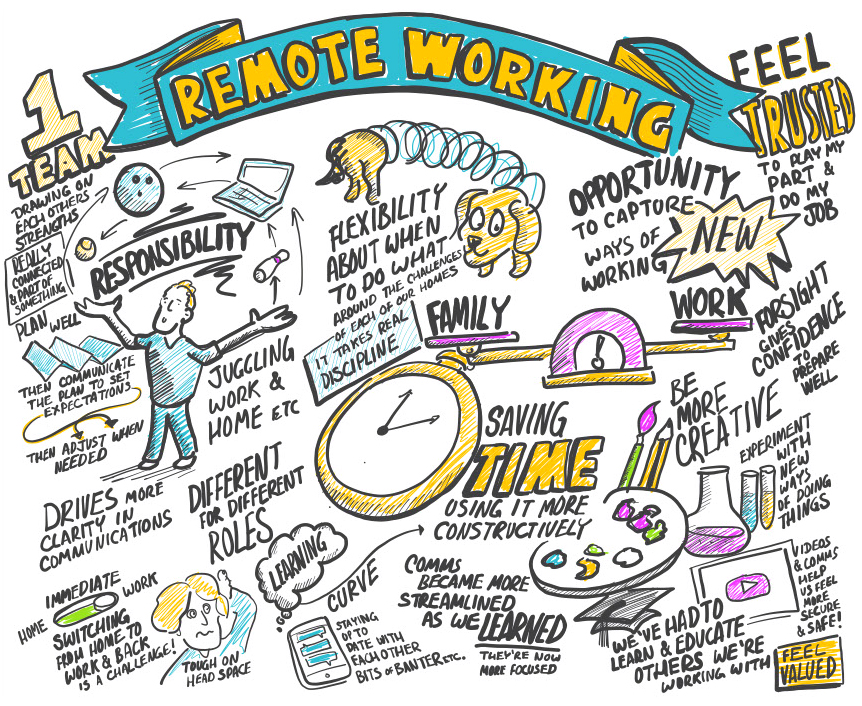 REMOTE WORKING
1
TEAM
DRAWING ON
EACH OTHERS
STRENGTHS
REALLY
CONNECTED
& PART OF
SOMETHING
RESPONSIBILITY
PLAN WELL
THEN COMMUNICATE
THE PLAN TO SET
EXPECTATIONS
THEN ADJUST WHEN
NEEDED
JUGGLING
WORK &
HOME ETC
FLEXIBILITY
ABOUT WHEN
TO DO WHAT
AROUND THE CHALLENGES
OF EACH OF OUR HOMES
IT TAKES REAL
DISCIPLINE
FAMILY
WORK
OPPORTUNITY
TO CAPTURE
WAYS OF
WORKING
NEW
FEEL
TRUSTED
TO PLAY MY
PART &
DO MY
JOB
FORSIGHT
GIVES
CONFIDENCE
TO
PREPARE
WELL
SAVING
TIME
USING IT MORE
CONSTRUCTIVELY
BE
MORE
CREATIVE
EXPERIMENT
WITH
NEW
WAYS
OF DOING
THINGS
DRIVES MORE
CLARITY IN
COMMUNICATIONS
DIFFERENT
FOR DIFFERENT
ROLES
IMMEDIATE
HOME
WORK
SWITCHING
FROM HOME TO
WORK & BACK
IS A CHALLENGE!
TOUGH ON
HEAD SPACE
LEARNING
CURVE
STAYING
UP TO
DATE WITH
EACH OTHER
BITS OF BANTER ETC.
COMMS
BECAME MORE
STREAMLINED
AS WE LEARNED
THEY'RE NOW
MORE FOCUSED
WE'VE HAD TO
LEARN & EDUCATE
OTHERS WE'RE
WORKING WITH
VIDEOS
& COMMS
HELP
US FEEL
MORE
SECURE
& SAFE!
FEEL
VALUED